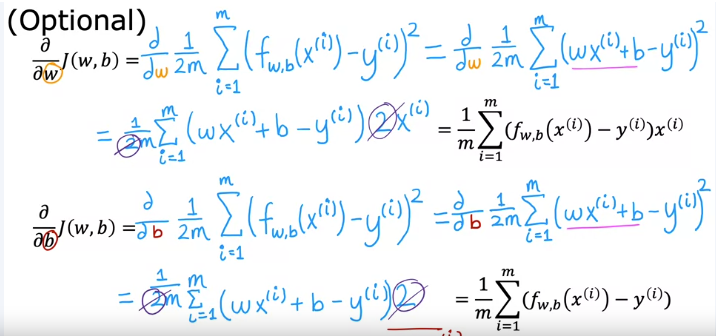 (Optional)
∂/∂w J(w, b) = d/dw 1/2m Σ_{i=1}^{m} (f_{w,b}(x^{(i)}) − y^{(i)})² = d/dw 1/2m Σ_{i=1}^{m} (wx^{(i)} + b − y^{(i)})²
= 1/2m Σ_{i=1}^{m} (wx^{(i)} + b − y^{(i)}) 2x^{(i)} = 1/m Σ_{i=1}^{m} (f_{w,b}(x^{(i)}) − y^{(i)})x^{(i)}
∂/∂b J(w, b) = ∂/∂b 1/2m Σ_{i=1}^{m} (f_{w,b}(x^{(i)}) − y^{(i)})² = ∂/∂b 1/2m Σ_{i=1}^{m} (wx^{(i)} + b − y^{(i)})²
= 1/2m Σ_{i=1}^{m} (wx^{(i)} + b − y^{(i)}) 2 = 1/m Σ_{i=1}^{m} (f_{w,b}(x^{(i)}) − y^{(i)})